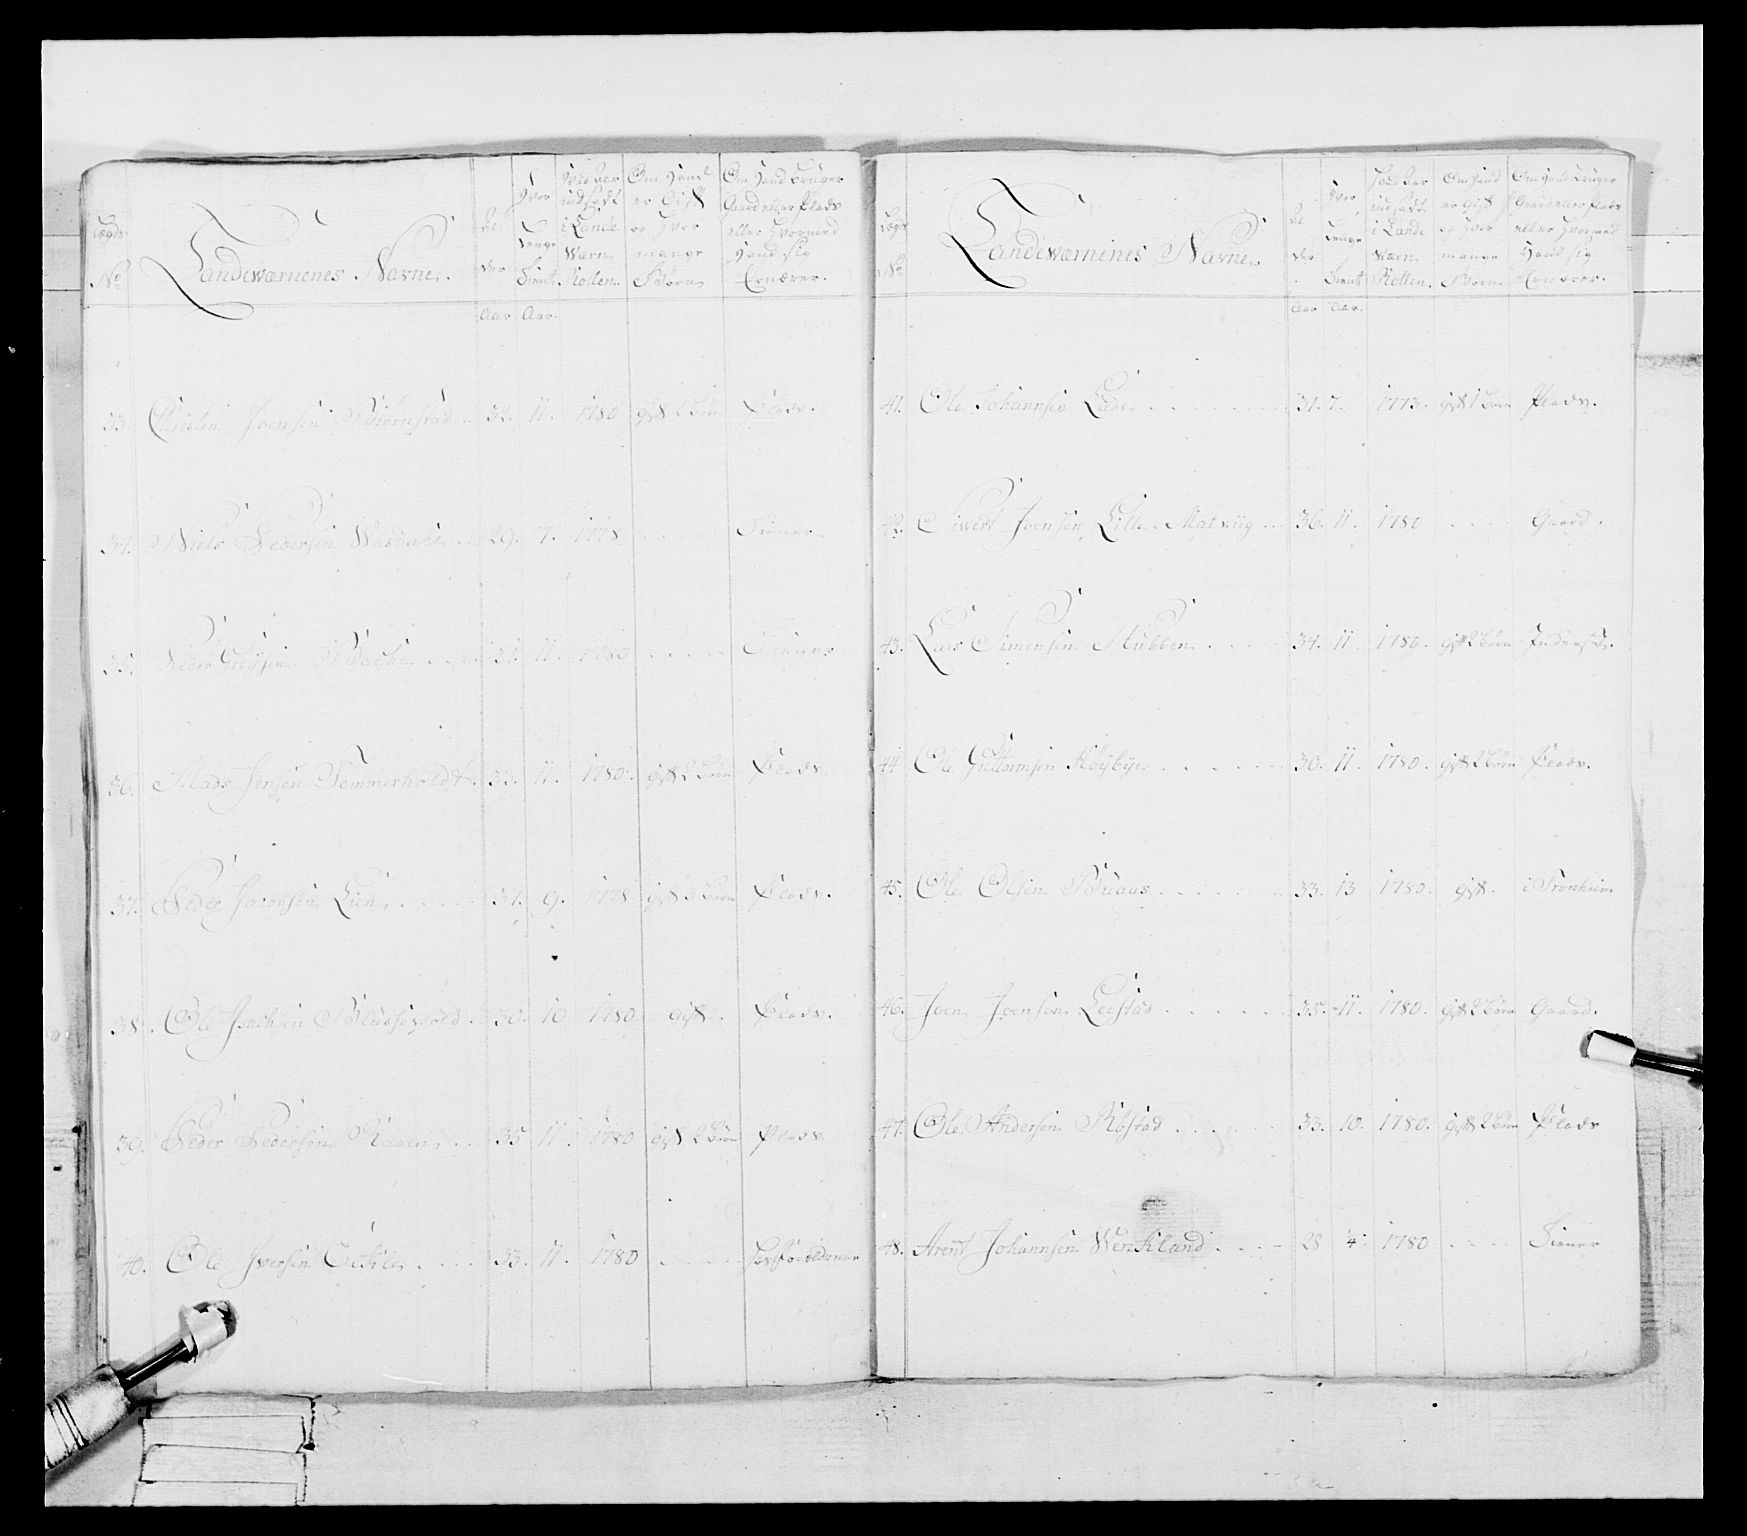 Lægds No
Landeværnenes Navne.
Al der
Hvor Længe Tient
Hvad Aar indsadt i Lande Wærn Rollen.
Om Hand er Gift og Hvor mange Børn
Om Hand bruger Gaard eller Plads eller Hvormed Hand sig Ernærer.
Aar Aar.
33. Christen Joensen Biörnstad 32. 11. 1780 gift 2 Börn Plads.
34. Niels Pedersen 29. 7. 1778 Tiener
35. Peder Bache 31. 11. 1780 Tiener
36. Mads Jensen Sommerholdt. 32. 11. 1780. gift 2 Börn Plads.
37. Peder Jacobsen Lien 37. 9. 1778 gift 3 Börn Plads.
38. Ole Isachsen 30. 10 1780 gift. Plads.
39. Peder Pedersen 35 11. 1780 gift 2 Börn Plads
40. Ole Iversen 33. 11. 1780
Lægds No
Landeværnenes Navne.
Al der
Hvor Længe Tient
Hvad Aar indsadt i Lande Wærn Rollen.
Om Hand er Gift og Hvor mange Börn
Om Hand bruger Gaard eller Plads eller Hvormed Hand sig Ernærer.
Aar Aar.
41. Ole Johannsen 31. 7. 1773. gift 1 Børn Plads.
42. Siwert Joensen Lille Malviig 36. 11. 1780 Gaard.
43. Lars Simensen Stubben 34. 11. 1780. gift 2 Börn Inderst.
44 Ole Guttormsen Höybye 30. 11. 1780. gift 2 Börn Plads.
45. Ole Olsen Buaas 33. 13 1780. gift. i Tronhiem
46. Joen Joensen Leestad 35. 11. 1780. gift 2 Börn Gaard.
47. Ole Andersen Röstad 33. 10. 1780. gift 2 Börn Plads
48. Arent Johannsen Werikland 28 4. 1780 Tiener